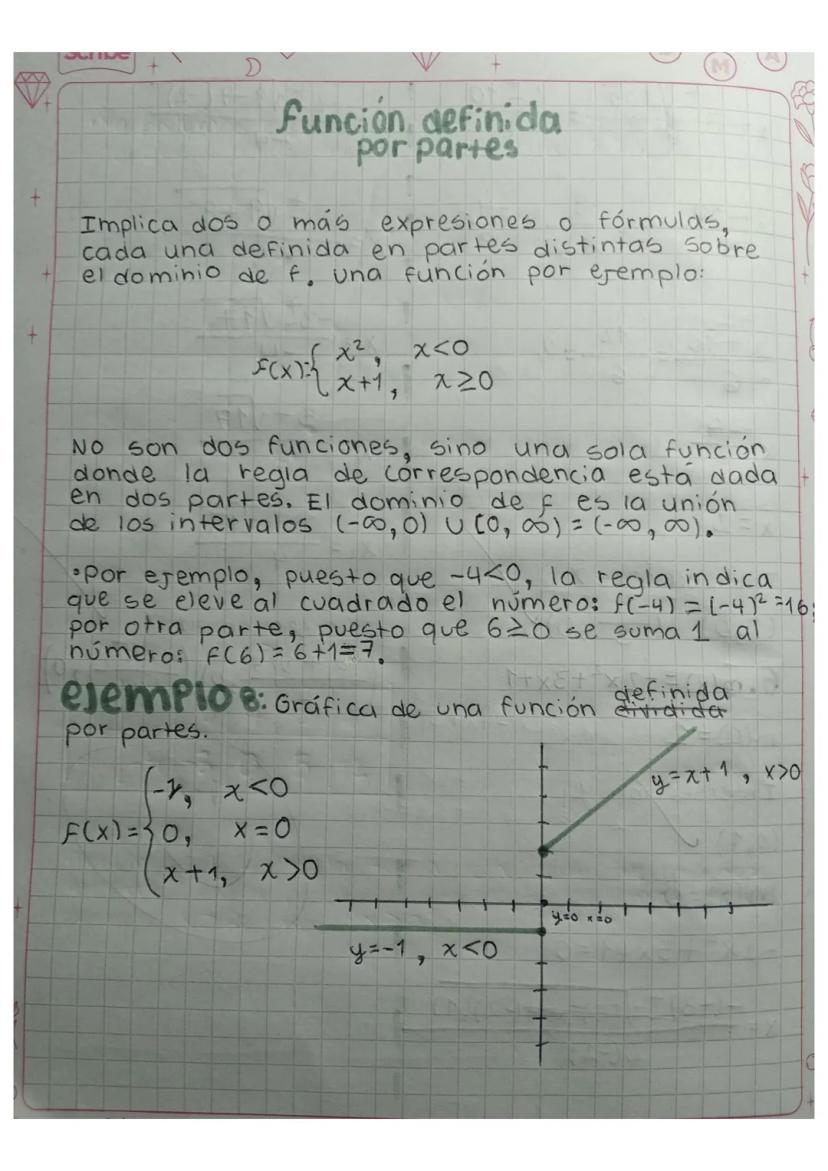 Scribe
función definida
por partes
Implica dos o más expresiones o fórmulas,
cada una definida en partes distintas sobre
el dominio de f. una función por ejemplo:
F(x)={ x², x<0
x+1, x≥0
NO son dos funciones, sino una sola función
donde la regla de correspondencia está dada
en dos partes. El dominio de f es la unión
de los intervalos (-∞,0) ∪ [0, ∞) = (-∞, ∞).
•Por ejemplo, puesto que -4<0, la regla indica
que se eleve al cuadrado el número: f(-4) = (-4)² =16;
por otra parte, puesto que 6≥0 se suma 1 al
número: f(6) = 6+1=7.
Ejemplo 8: Gráfica de una función definida
dividida
por partes.
y=x+1, x>0
-1, x<0
F(x)= 0, x=0
x+1, x>0
y=0 x=0
y=-1, x<0